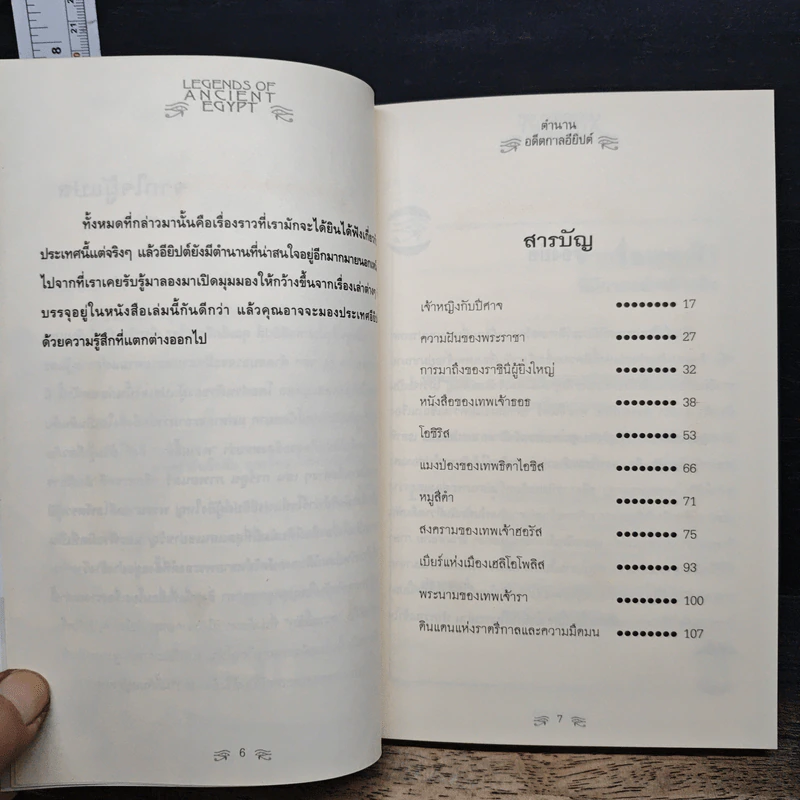 8
21
20
LEGENDS OF
ANCIENT
EGYPT
ทั้งหมดที่กล่าวมานั้นคือเรื่องราวที่เรามักจะได้ยินได้ฟังเกี่ยวกับ
ประเทศนี้แต่จริงๆ แล้วอียิปต์ยังมีตำนานที่น่าสนใจอยู่อีกมากมายนอกเหนือ
ไปจากที่เราเคยรับรู้มาลองมาเปิดมุมมองให้กว้างขึ้นจากเรื่องเล่าต่างๆ
บรรจุอยู่ในหนังสือเล่มนี้กันดีกว่า แล้วคุณอาจจะมองประเทศ
ด้วยความรู้สึกที่แตกต่างออกไป
6
ตำนาน
อดีตกาลอียิปต์
สารบัญ
เจ้าหญิงกับปีศาจ ●●●●●●●●● 17
ความฝันของพระราชา ●●●●●●●●● 27
การมาถึงของราชินีผู้ยิ่งใหญ่ ●●●●●●●●● 32
หนังสือของเทพเจ้าธอธ ●●●●●●●●● 38
โอซิริส ●●●●●●●●● 53
แมงป่องของเทพธิดาไอซิส ●●●●●●●●● 66
หมูสีดำ ●●●●●●●●● 71
สงครามของเทพเจ้าฮอรัส ●●●●●●●●● 75
เบียร์แห่งเมืองเฮลิโอโพลิส ●●●●●●●●● 93
พระนามของเทพเจ้ารา ●●●●●●●●● 100
ดินแดนแห่งราตรีกาลและความมืดมน ●●●●●●●●● 107
7